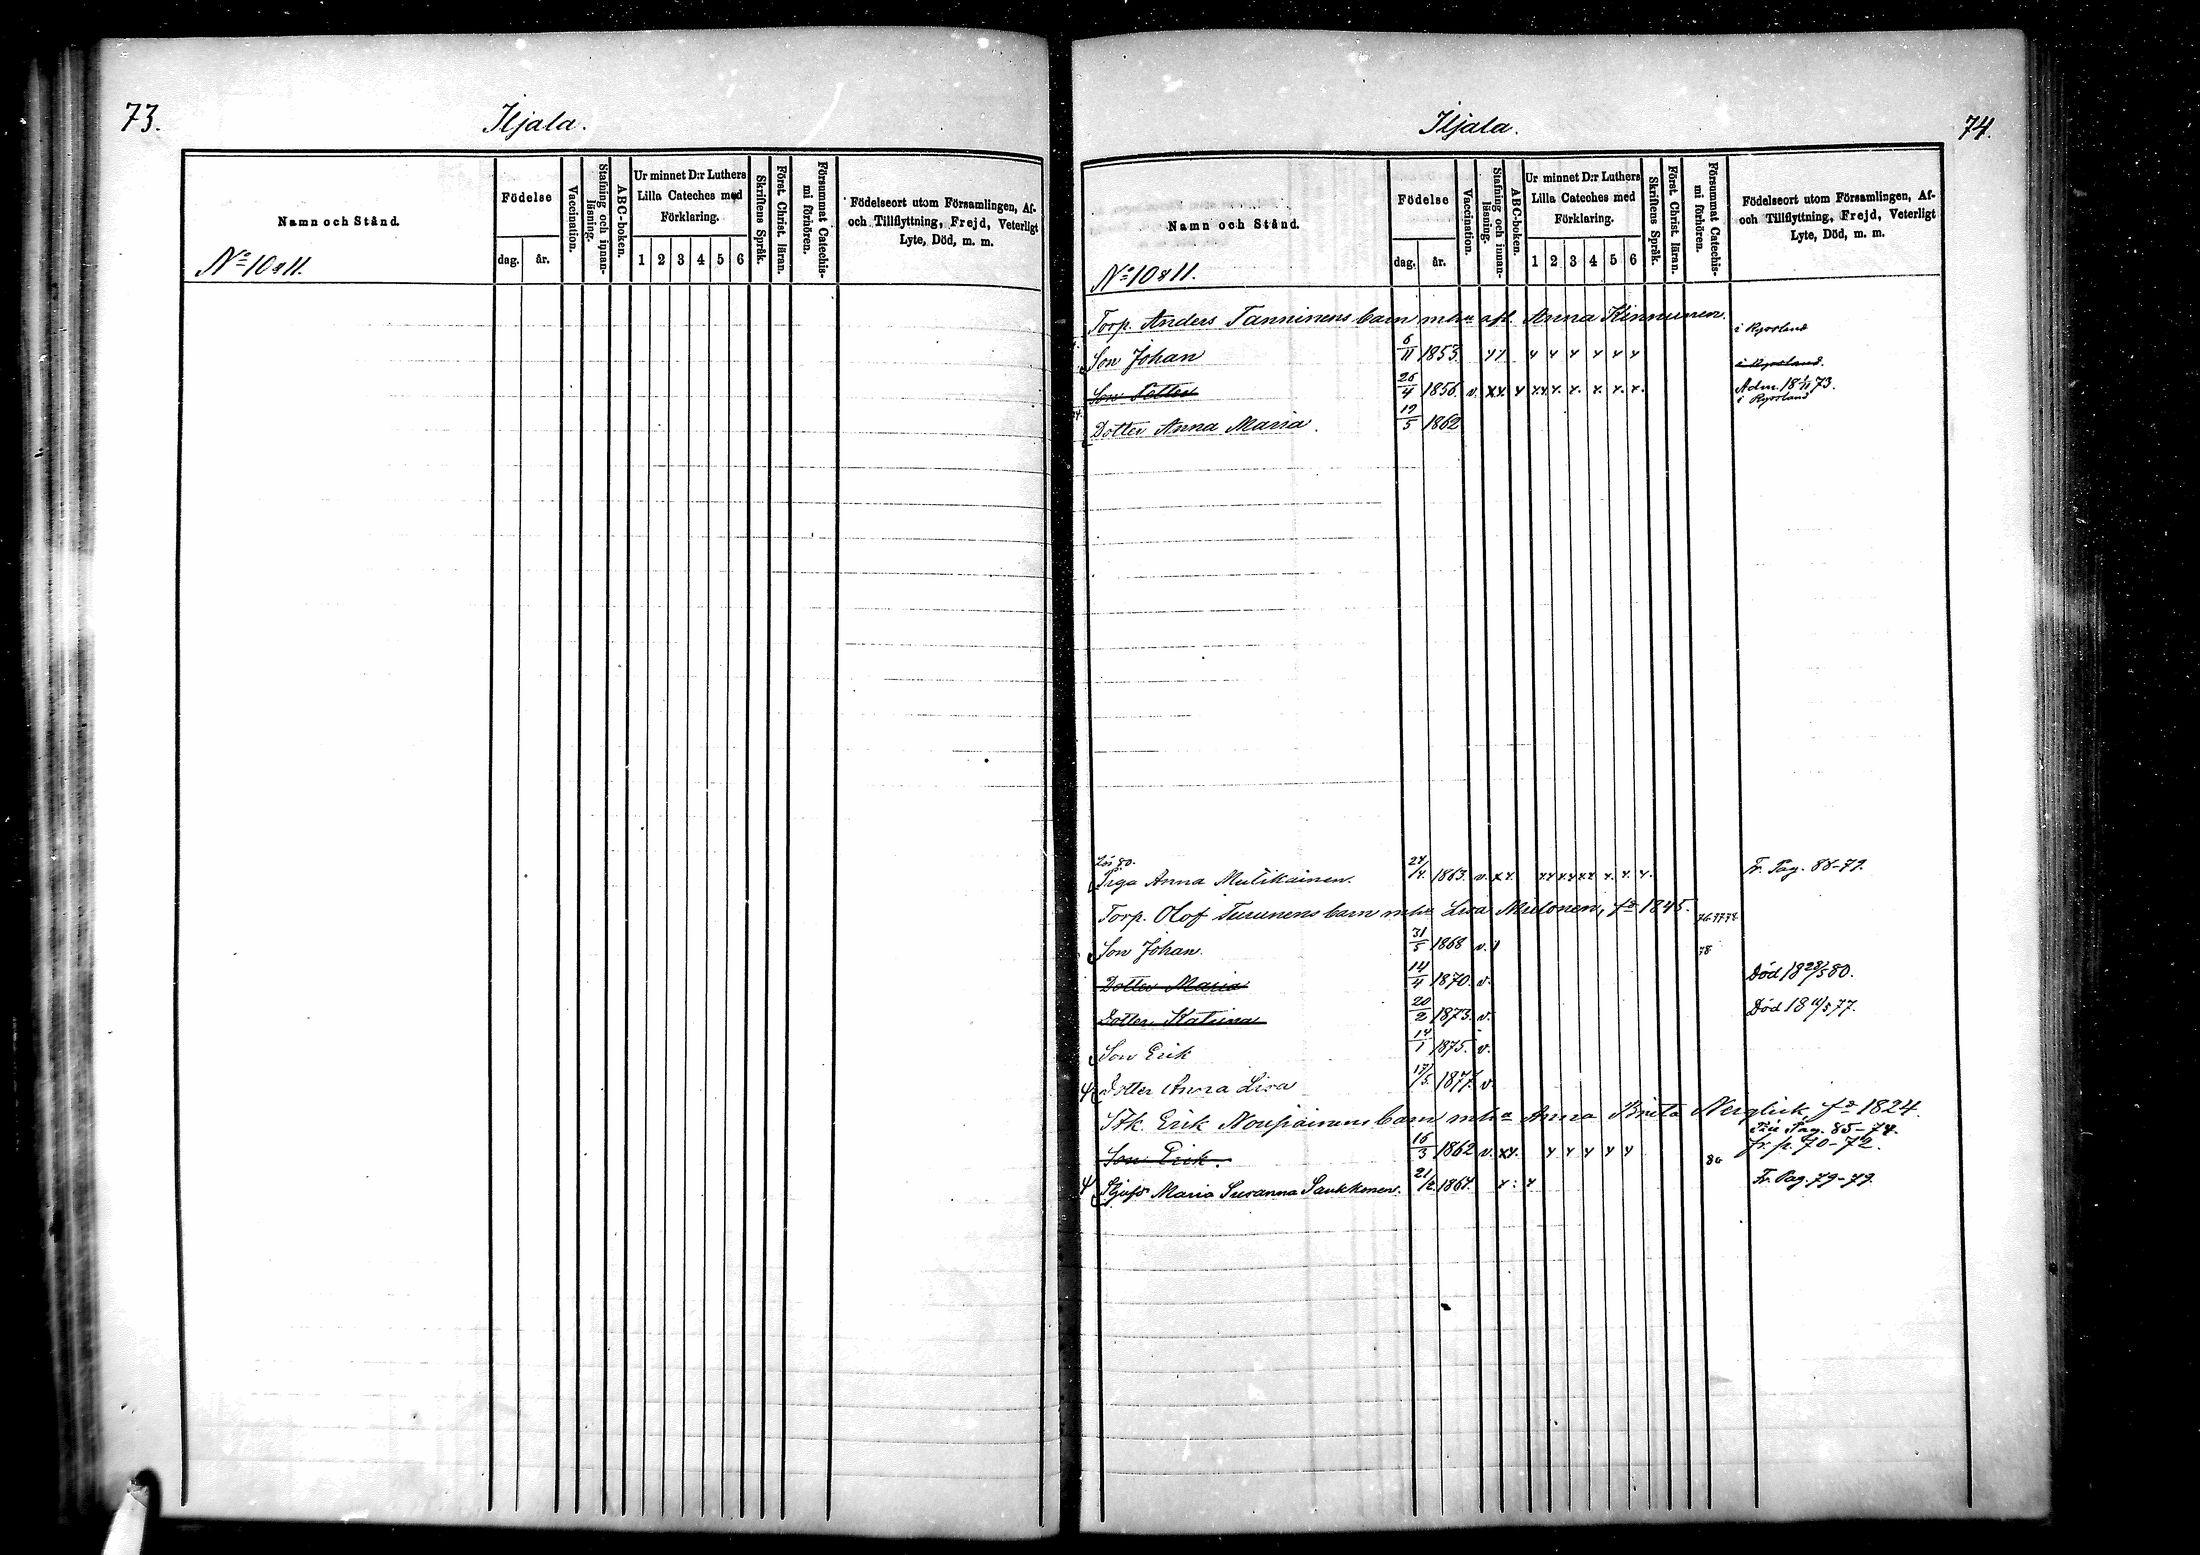 73.
Iljala.
Namn och Stånd.
Födelse
dag.
år.
Vaccination.
Stafning och innanläsning.
ABC-boken.
Ur minnet D:r Luthers
Lilla Cateches med
Förklaring.
1 2 3 4 5 6
Skriftens Språk.
Först. Christ. läran.
Försummat Catechismi förhören.
Födelseort utom Församlingen, Af-
och Tillflyttning, Frejd, Veterligt
Lyte, Död, m. m.
No 10 & 11.
Iljala.
74.
Namn och Stånd.
Födelse
dag.
år.
Vaccination.
Stafning och innanläsning.
ABC-boken.
Ur minnet D:r Luthers
Lilla Cateches med
Förklaring.
1 2 3 4 5 6
Skriftens Språk.
Först. Christ. läran.
Försummat Catechismi förhören.
Födelseort utom Församlingen, Af-
och Tillflyttning, Frejd, Veterligt
Lyte, Död, m. m.
No 10 & 11.
Torp. Anders Tanninens barn mhu afl. Anna Kinnunen.
Son Johan 6/11 1853 i Ryssland
Son Petter 26/4 1856. v. i Ryssland. Adm. 18 1/11 73.
Dotter Anna Maria 19/5 1862 i Ryssland
Piga Anna Mulikainen. 24/4. 1863. v. Fr. Pag. 88-79.
Torp. Olof Turunens barn mhu Lisa Mulonen, fd 1845. 76.77.78.
Son Johan 31/5 1868 v. 78
Dotter Maria 14/4 1870. v. Död 18 28/5 80.
Dotter Katrina 20/2 1873. v. Död 18 11/5 77.
Son Erik 14/1 1875. v.
Dotter Anna Lisa 17/5. 1877. v
Stk. Erik Noupiainens barn mhu Anna Brita Nerglick, fd 1824.
Son Erik. 16/3 1862 v. Pag. 85-74. fr. p. 70-72.
Maria Susanna Saukkonen. 21/12 1864. 80 Fr. Pag. 79-79.